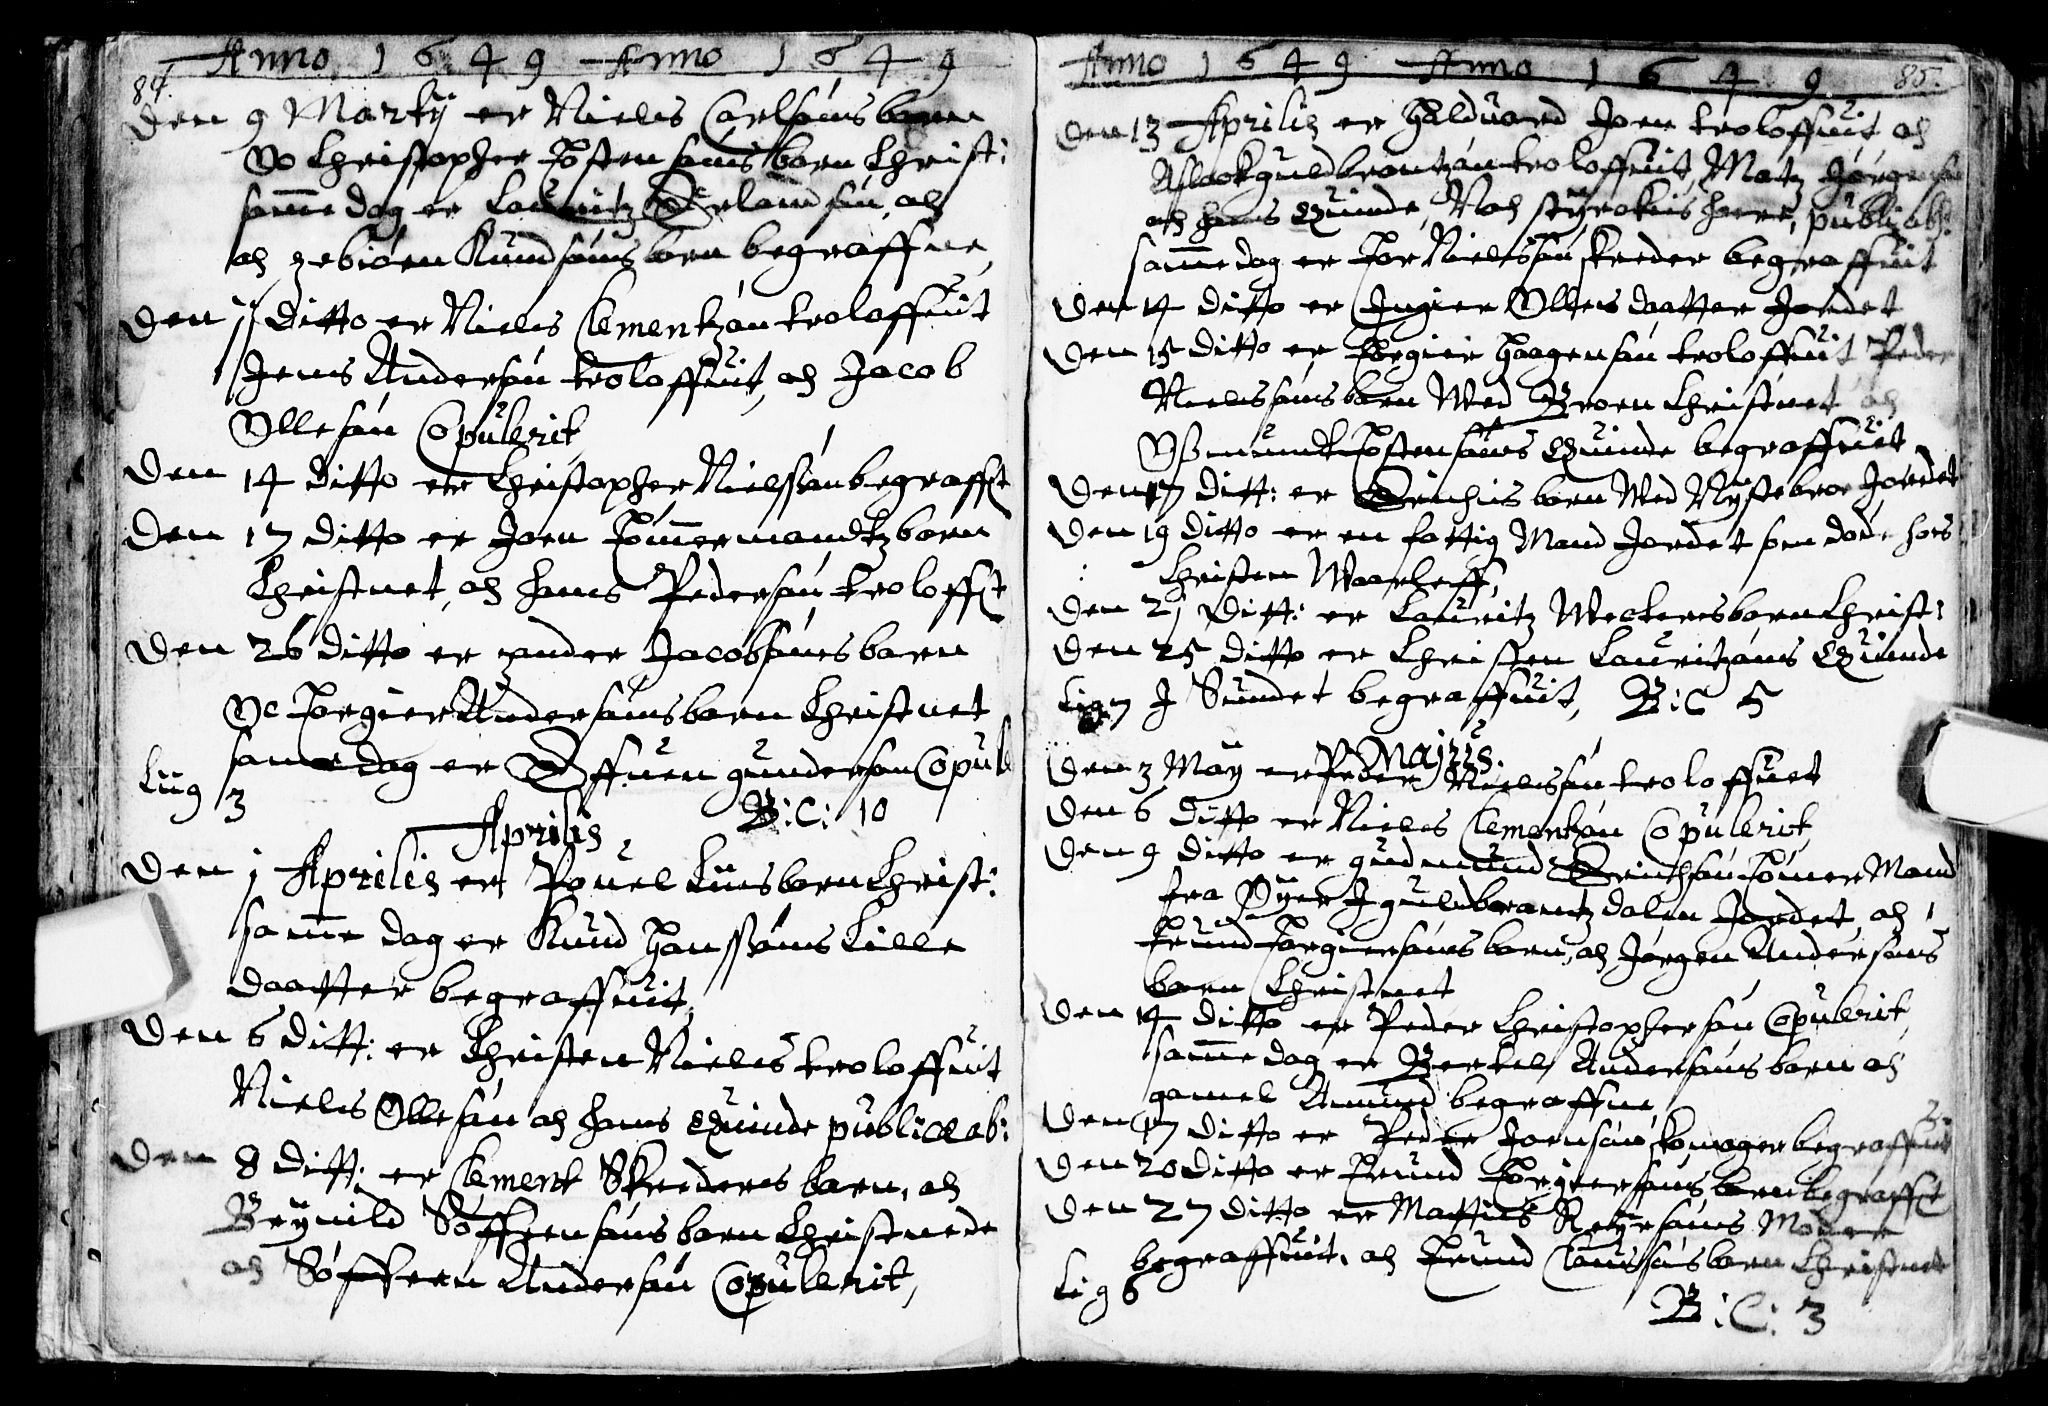 Anno 1649 Anno 1649
84.
Den 9 Martij er Niels Carlsøns barn
Oc Christopher Tostensøns barn Christ:
samme dag er Lauritz Erlandsøn, oc
oc Zebiørn Knudsøns barn begraffne,
Den 11 Ditto er Niels Clementzøn troloffuit
Jens Andersøn troloffuit, och Jacob
Ollesøn Copulerit,
Den 14 ditto er Christopher Nielssøn begrafft
Den 17 ditto er Joen Tømmermandtz barn
Christnet, och Hans Pedersøn, troloffit
Den 26 ditto er Jacobsøns barn
Oc Torgier Andersøns barn Christnet
samme dag er Effuen Gundersøn Copul
Liig 3 B:C: 10
Aprilis
Den 1 Aprilis er Pouel Liis barn Christ:
samme dag er Knud Hanssøns Lille
daatter begraffuit,
Den 6 ditt: er Christen Niels troloffuit
Niels Ollesøn och hans Quinde publiceab:
Den 8 ditt: er Clement Skreders barn, och
Brynild Søffrensøns barn Christnede
och Søffren Andersøn Copulerit,
Anno 1649 Anno 1649 85.
Den 13 Aprilis er Halduord Joen troloffuit och
Asloek Guldbrantzøn troloffuit, Matz Jørgensøn
och hans Quinde, publicab:
samme dag er Tor Nielssøn skreder begraffuit
Den 14 ditto er Ingier Olles daatter Jordet
Den 15 ditto er Torgier Haagensøn troloffuit Peder
Nielssøns barn Wed Broen Christnet och
Oßmundt Tostensøns Quinde begraffuet
Den 17 ditt: er barn Wed Nystebroe Jordet
Den 19 ditto er en fattig Mand Jordet som døde hos
Christen
Den 21 Ditt: er Lauritz Mecters barn Christ:
Den 25 ditto er Christen Lauritzøns Quinde
Lig 7 J Sundet begraffuit, B:C 5
Majus.
Den 3 Maij er Peder Nielssøn troloffuet
Den 6 ditto er Niels Clementzøn Copulerit,
Den 9 ditto er Gudmund Erichsøn Tømer Mand
fra Øyer J Guldbrantzdalen Jordet, och
Trund Torguersøns barn, och Jørgen Andersøns
barn Christnet
Den 14 ditto er Peder Christophersøn Copulerit,
samme dag er Bertel Andersøns barn och
gamel Amund begraffne,
Den 17 ditto er Peder Joensøn skomager begraffuit
Den 20 ditto er Trund Torgiersøns barn begrafft
Den 27 ditto er Mattis Reyersøns Moder
begraffuit, och Trund Claussøns barn Christnet
Lig 6 B:C: 3